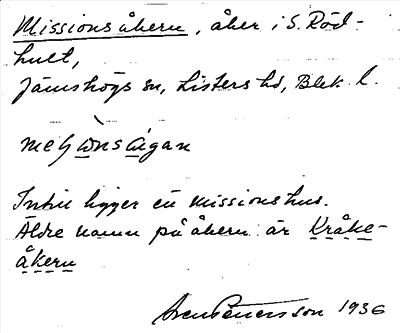 Missionsåkern, åker i S. Röd-
hult,
Jämshögs sn, Listers hd, Blek. l.
Intill ligger en missionshus.
Äldre namn på åkern är Kråke-
åkern
Sven Petersson 1936